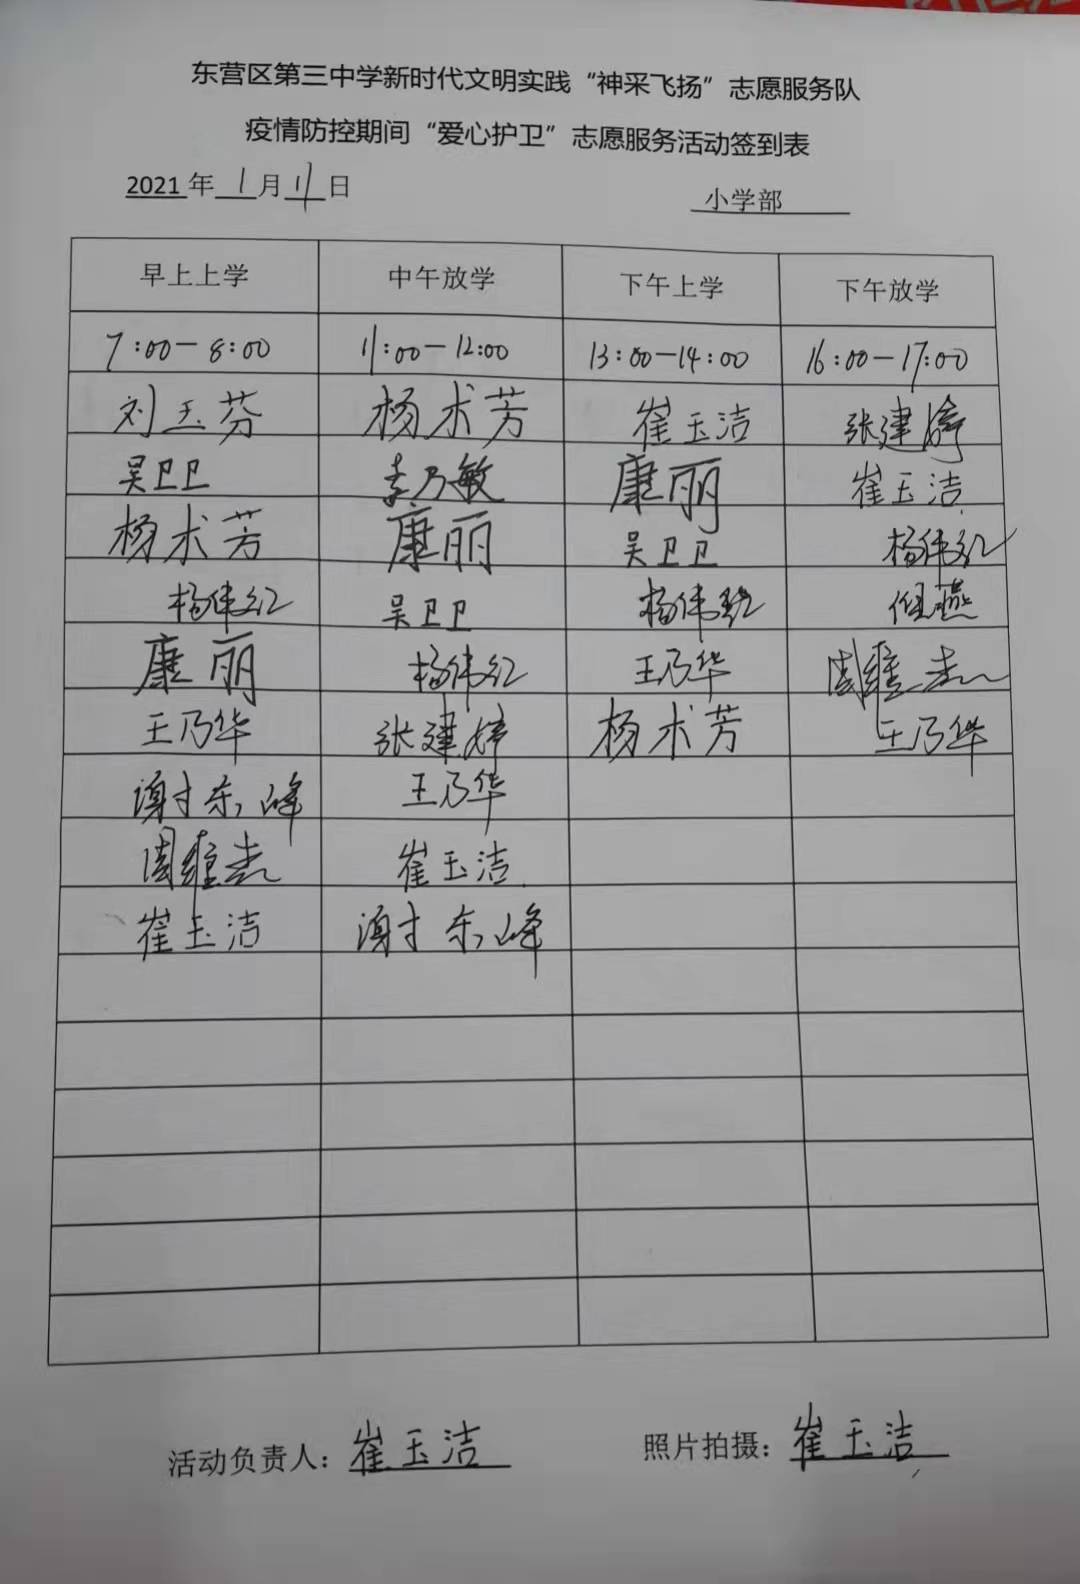 东营区第三中学新时代文明实践“神采飞扬”志愿服务队
疫情防控期间“爱心护卫”志愿服务活动签到表
2021年1月11日 小学部
早上上学 中午放学 下午上学 下午放学
7:00-8:00 11:00-12:00 13:00-14:00 16:00-17:00
刘玉芬 杨术芳 崔玉洁 张建婷
吴卫卫 乃敏 康丽 崔玉洁
杨术芳 康丽 吴卫卫 杨伟红
杨伟红 吴卫卫 杨伟红 燕
康丽 杨伟红 王乃华 周维杰
王乃华 张建婷 杨术芳 王乃华
谢东峰 王乃华
周维杰 崔玉洁
崔玉洁 谢东峰
活动负责人：崔玉洁 照片拍摄：崔玉洁